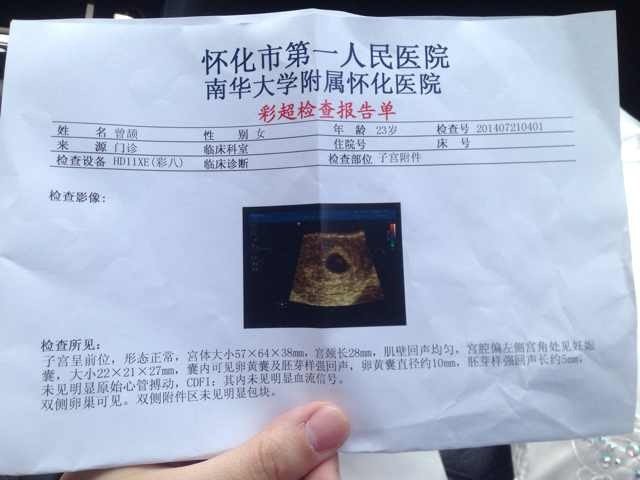 怀化市第一人民医院
南华大学附属怀化医院
彩超检查报告单
姓 名 曾颉 性 别 女 年 龄 23岁 检查号 201407210401
来 源 门诊 临床科室 住院号 床 号
检查设备 HD11XE(彩八) 临床诊断 检查部位 子宫附件
检查影像:
检查所见:
子宫呈前位，形态正常，宫体大小57×64×38mm，宫颈长28mm，肌壁回声均匀，宫腔偏左侧宫角处见妊娠
囊，大小22×21×27mm，囊内可见卵黄囊及胚芽样强回声，卵黄囊直径约10mm，胚芽样强回声长约5mm，
未见明显原始心管搏动，CDFI：其内未见明显血流信号。
双侧卵巢可见。双侧附件区未见明显包块。